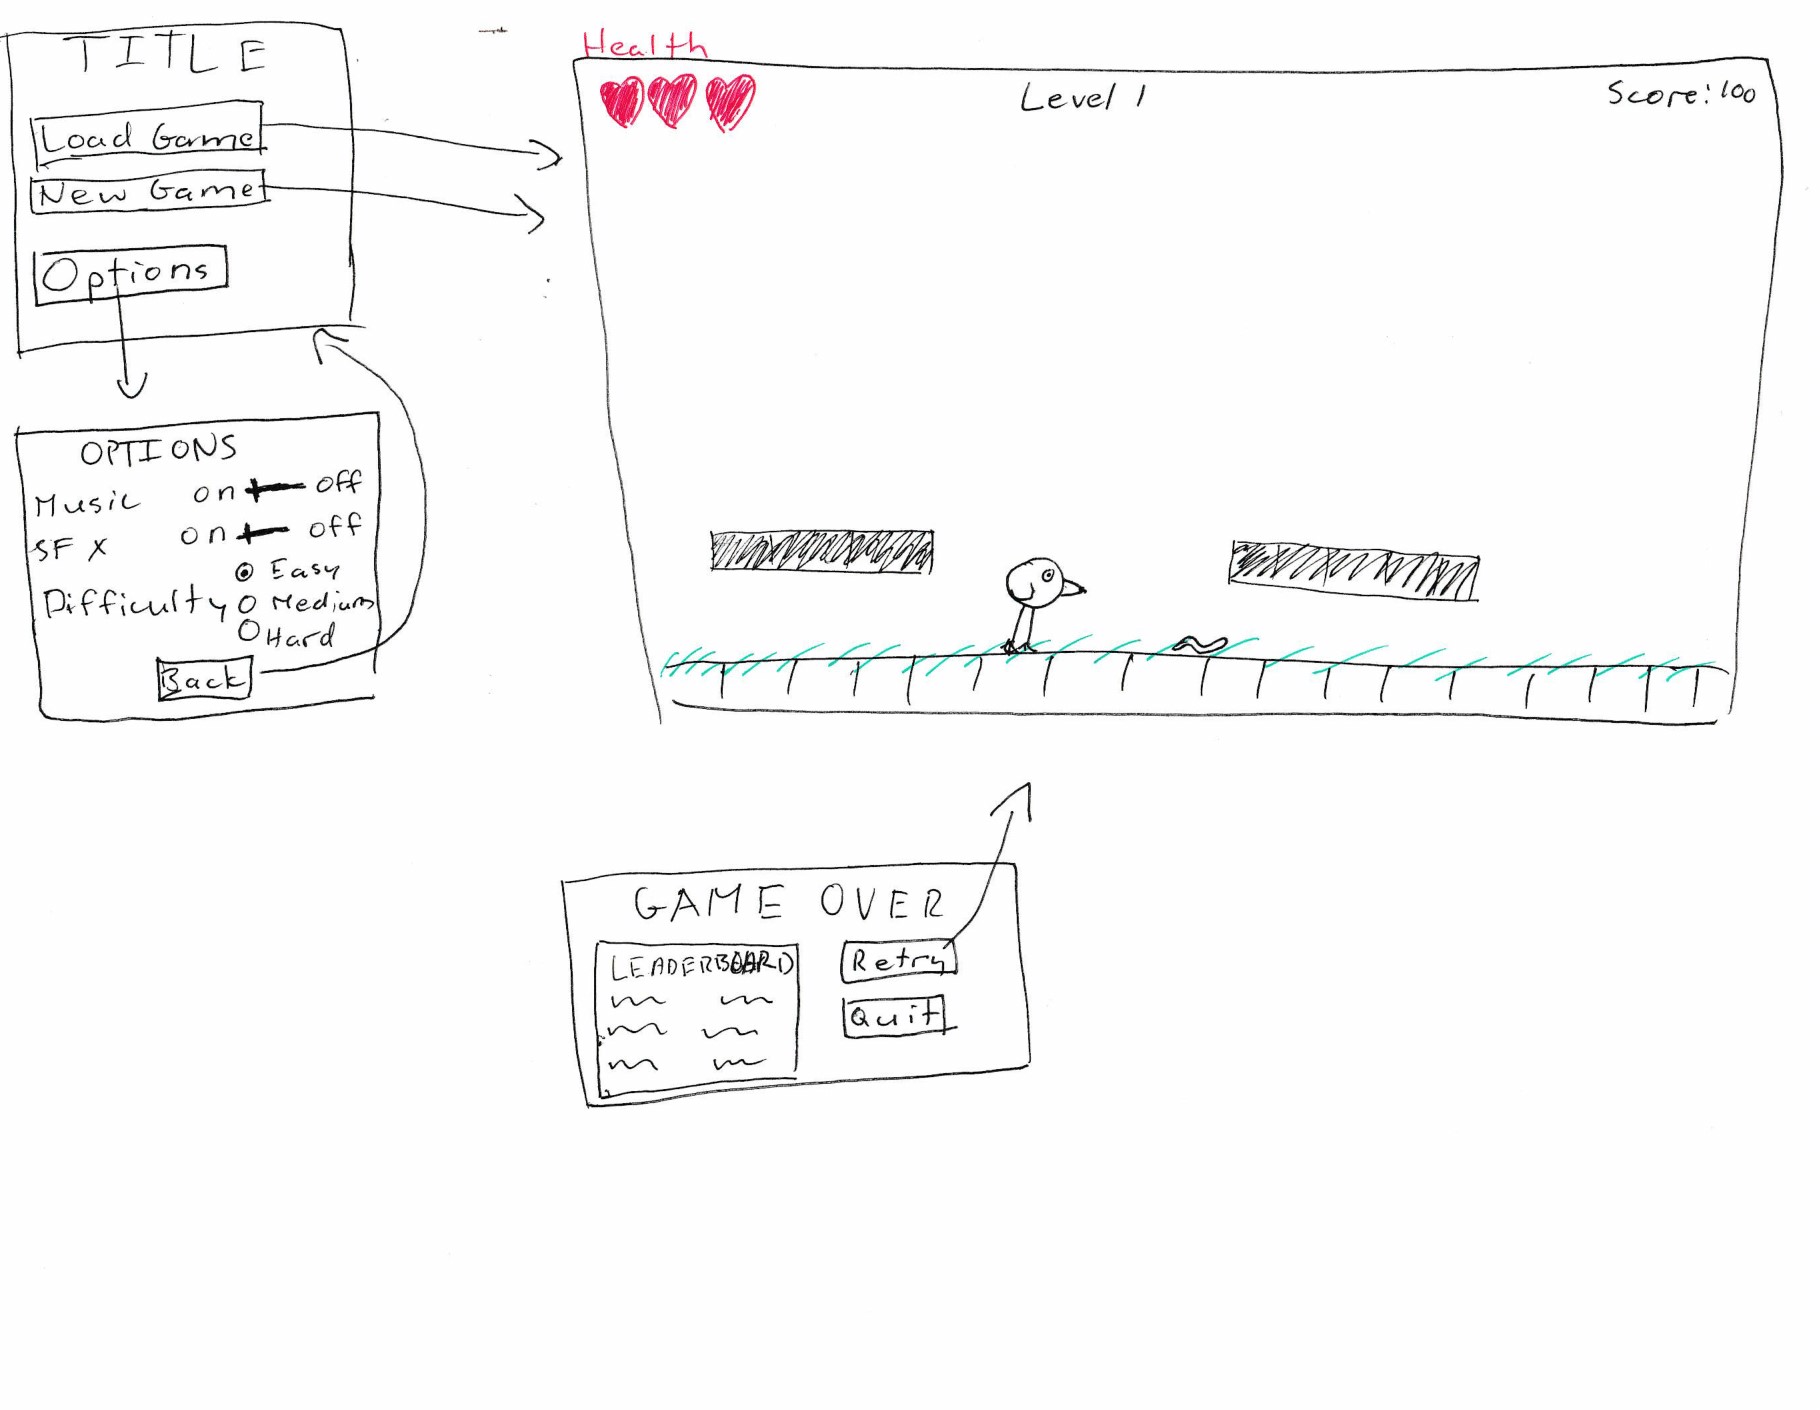 TITLE
Load Game
New Game
Options
OPTIONS
Music on off
SFX on off
Difficulty
Easy
Medium
Hard
Back
Health
Level 1
Score: 100
GAME OVER
LEADERBOARD
Retry
Quit